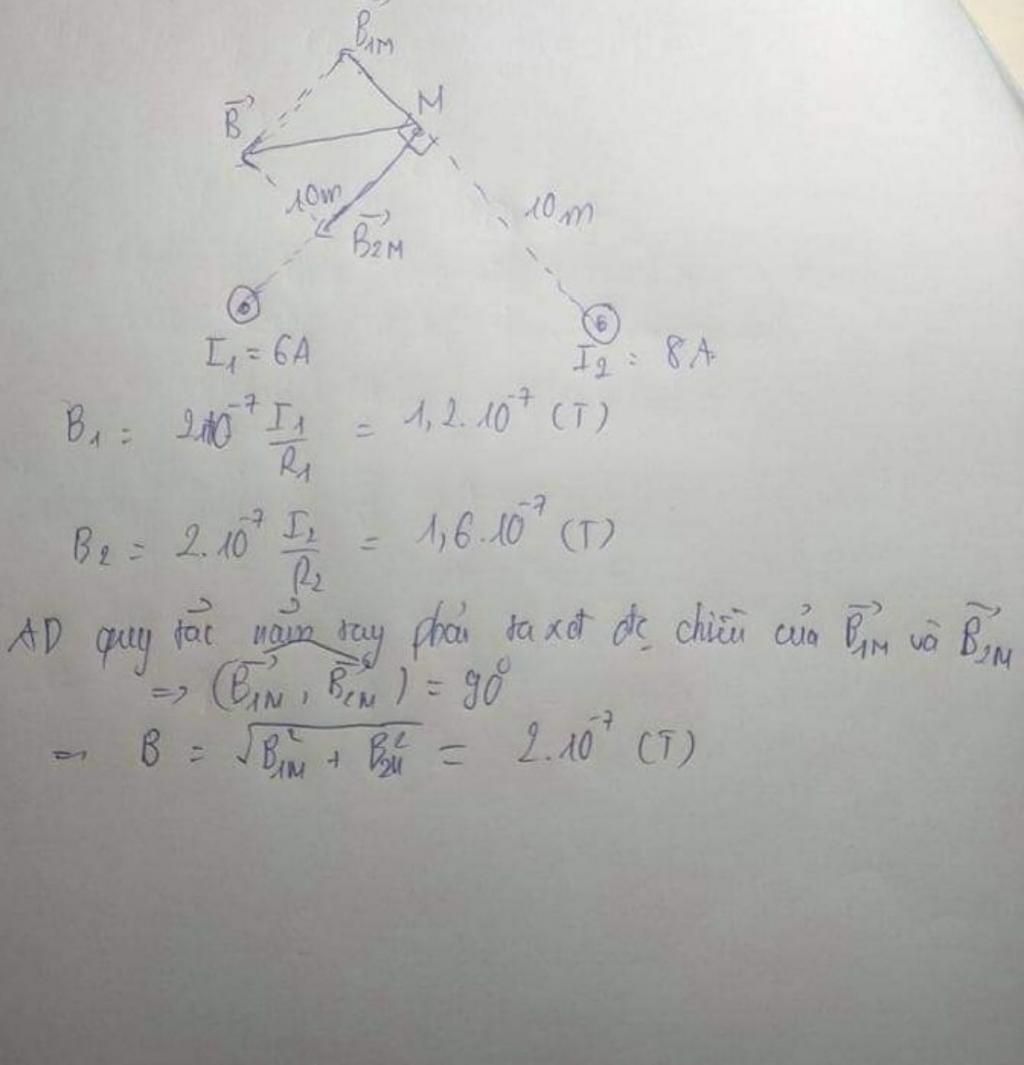 B⃗₁M
M
B⃗
10m
10m
B⃗₂M
I₁ = 6A
I₂ = 8A
B₁ = 2.10⁻⁷ I₁/R₁ = 1,2.10⁻⁷ (T)
B₂ = 2.10⁻⁷ I₂/R₂ = 1,6.10⁻⁷ (T)
AD quy tắc nắm tay phải ta xđ đc chiều của B⃗₁M và B⃗₂M
=> (B⃗₁M, B⃗₂M) = 90⁰
=> B = √(B₁M² + B₂M²) = 2.10⁻⁷ (T)